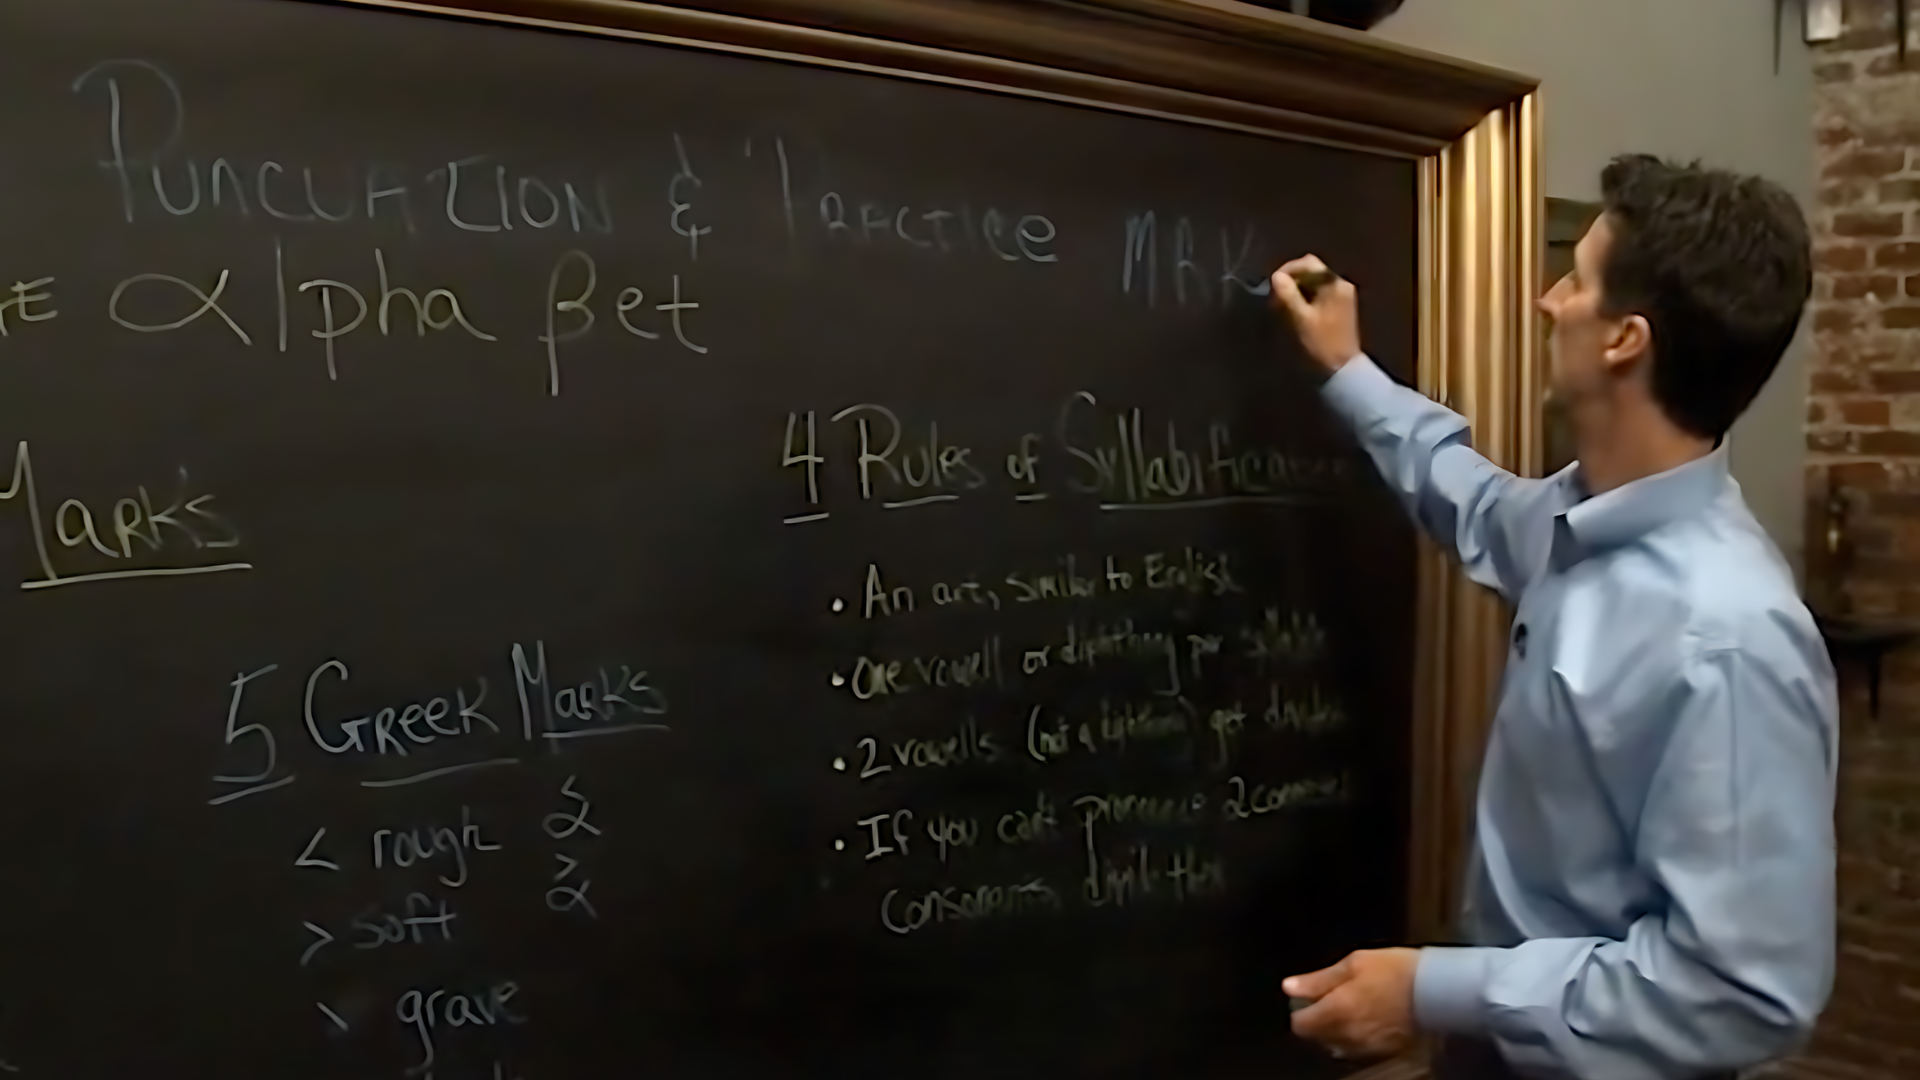 Puncuation & Practice MRK
αlpha βet
Marks
4 Rules of Syllabification
• An art, similar to English
• One vowell or dipthong per syllable
• 2 vowells (not a dipthong) get divided
• If you can't pronounce 2
consonants, divide them
5 Greek Marks
< rough ᾁ
> soft ἀ
\ grave